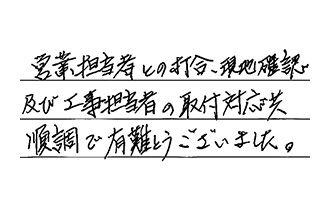 営業担当者との打合、現地確認
及び工事担当者の取付対応共
順調で有難とうございました。